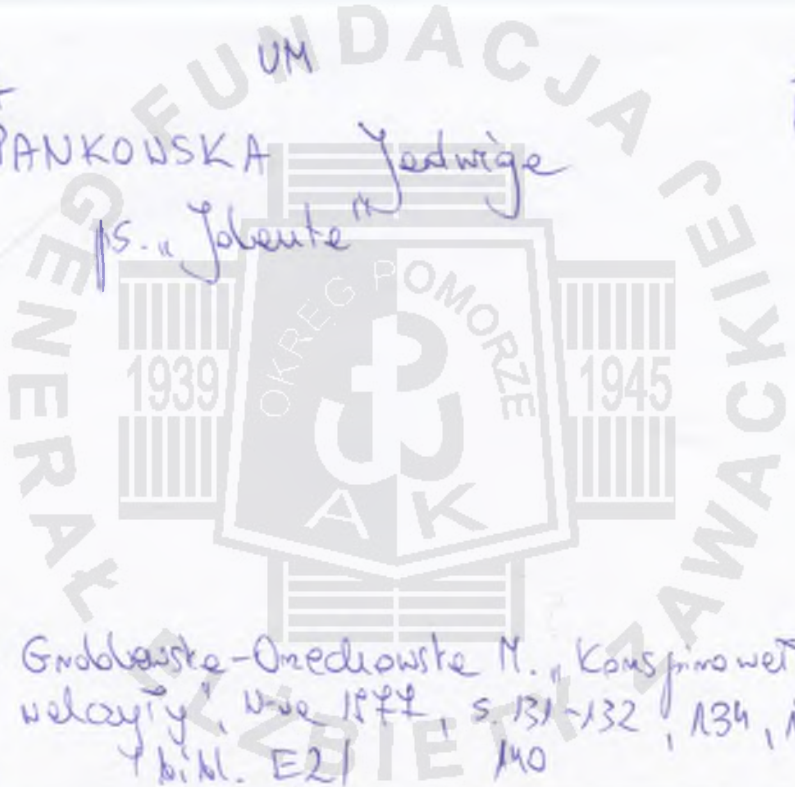 UM
PANKOWSKA Jadwiga
ps. „Jolanta"
FUNDACJA GENERAŁ ELŻBIETY ZAWACKIEJ
OKRĘG POMORZE
1939 1945
AK
Orzechowska M. „Konspirował
walczyły", W-wa 1977, s. 131-132, 134,
bibl. E21 140